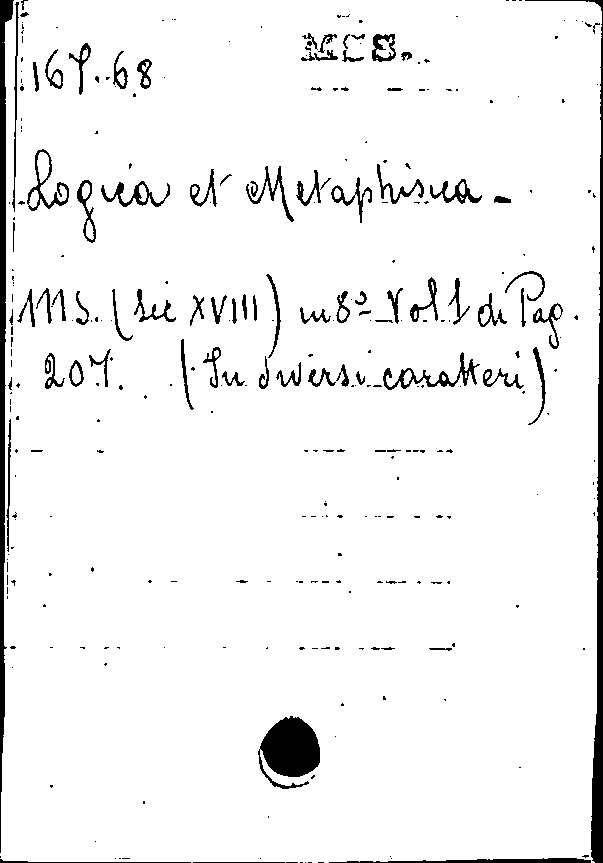 MSS.
167.68
Logica et Metaphisica -
MS. (Sec XVIII) in 8º Vol 1 di Pag.
207. (In diversi caratteri)